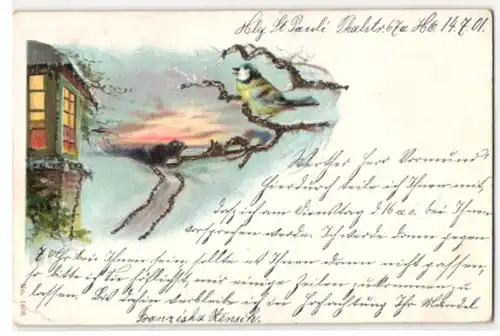 Hbg St Pauli Thalstr. 67a H6. 14.7.01.
Werther Herr Vormund!
Hierdurch teile ich Ihnen mit,
daß ich am Dienstag d. 16 a.c. bei Ihnen
vorsprechen werde. Ich werde dann gegen
7 Uhr bei Ihnen sein sollte es Ihnen dann nicht passen,
so bitte ich Sie höflichst, mir einige Zeilen zukommen zu
lassen. Bis dahin verbleibe ich in Hochachtung Ihr Mündel
Franziska Hensch.